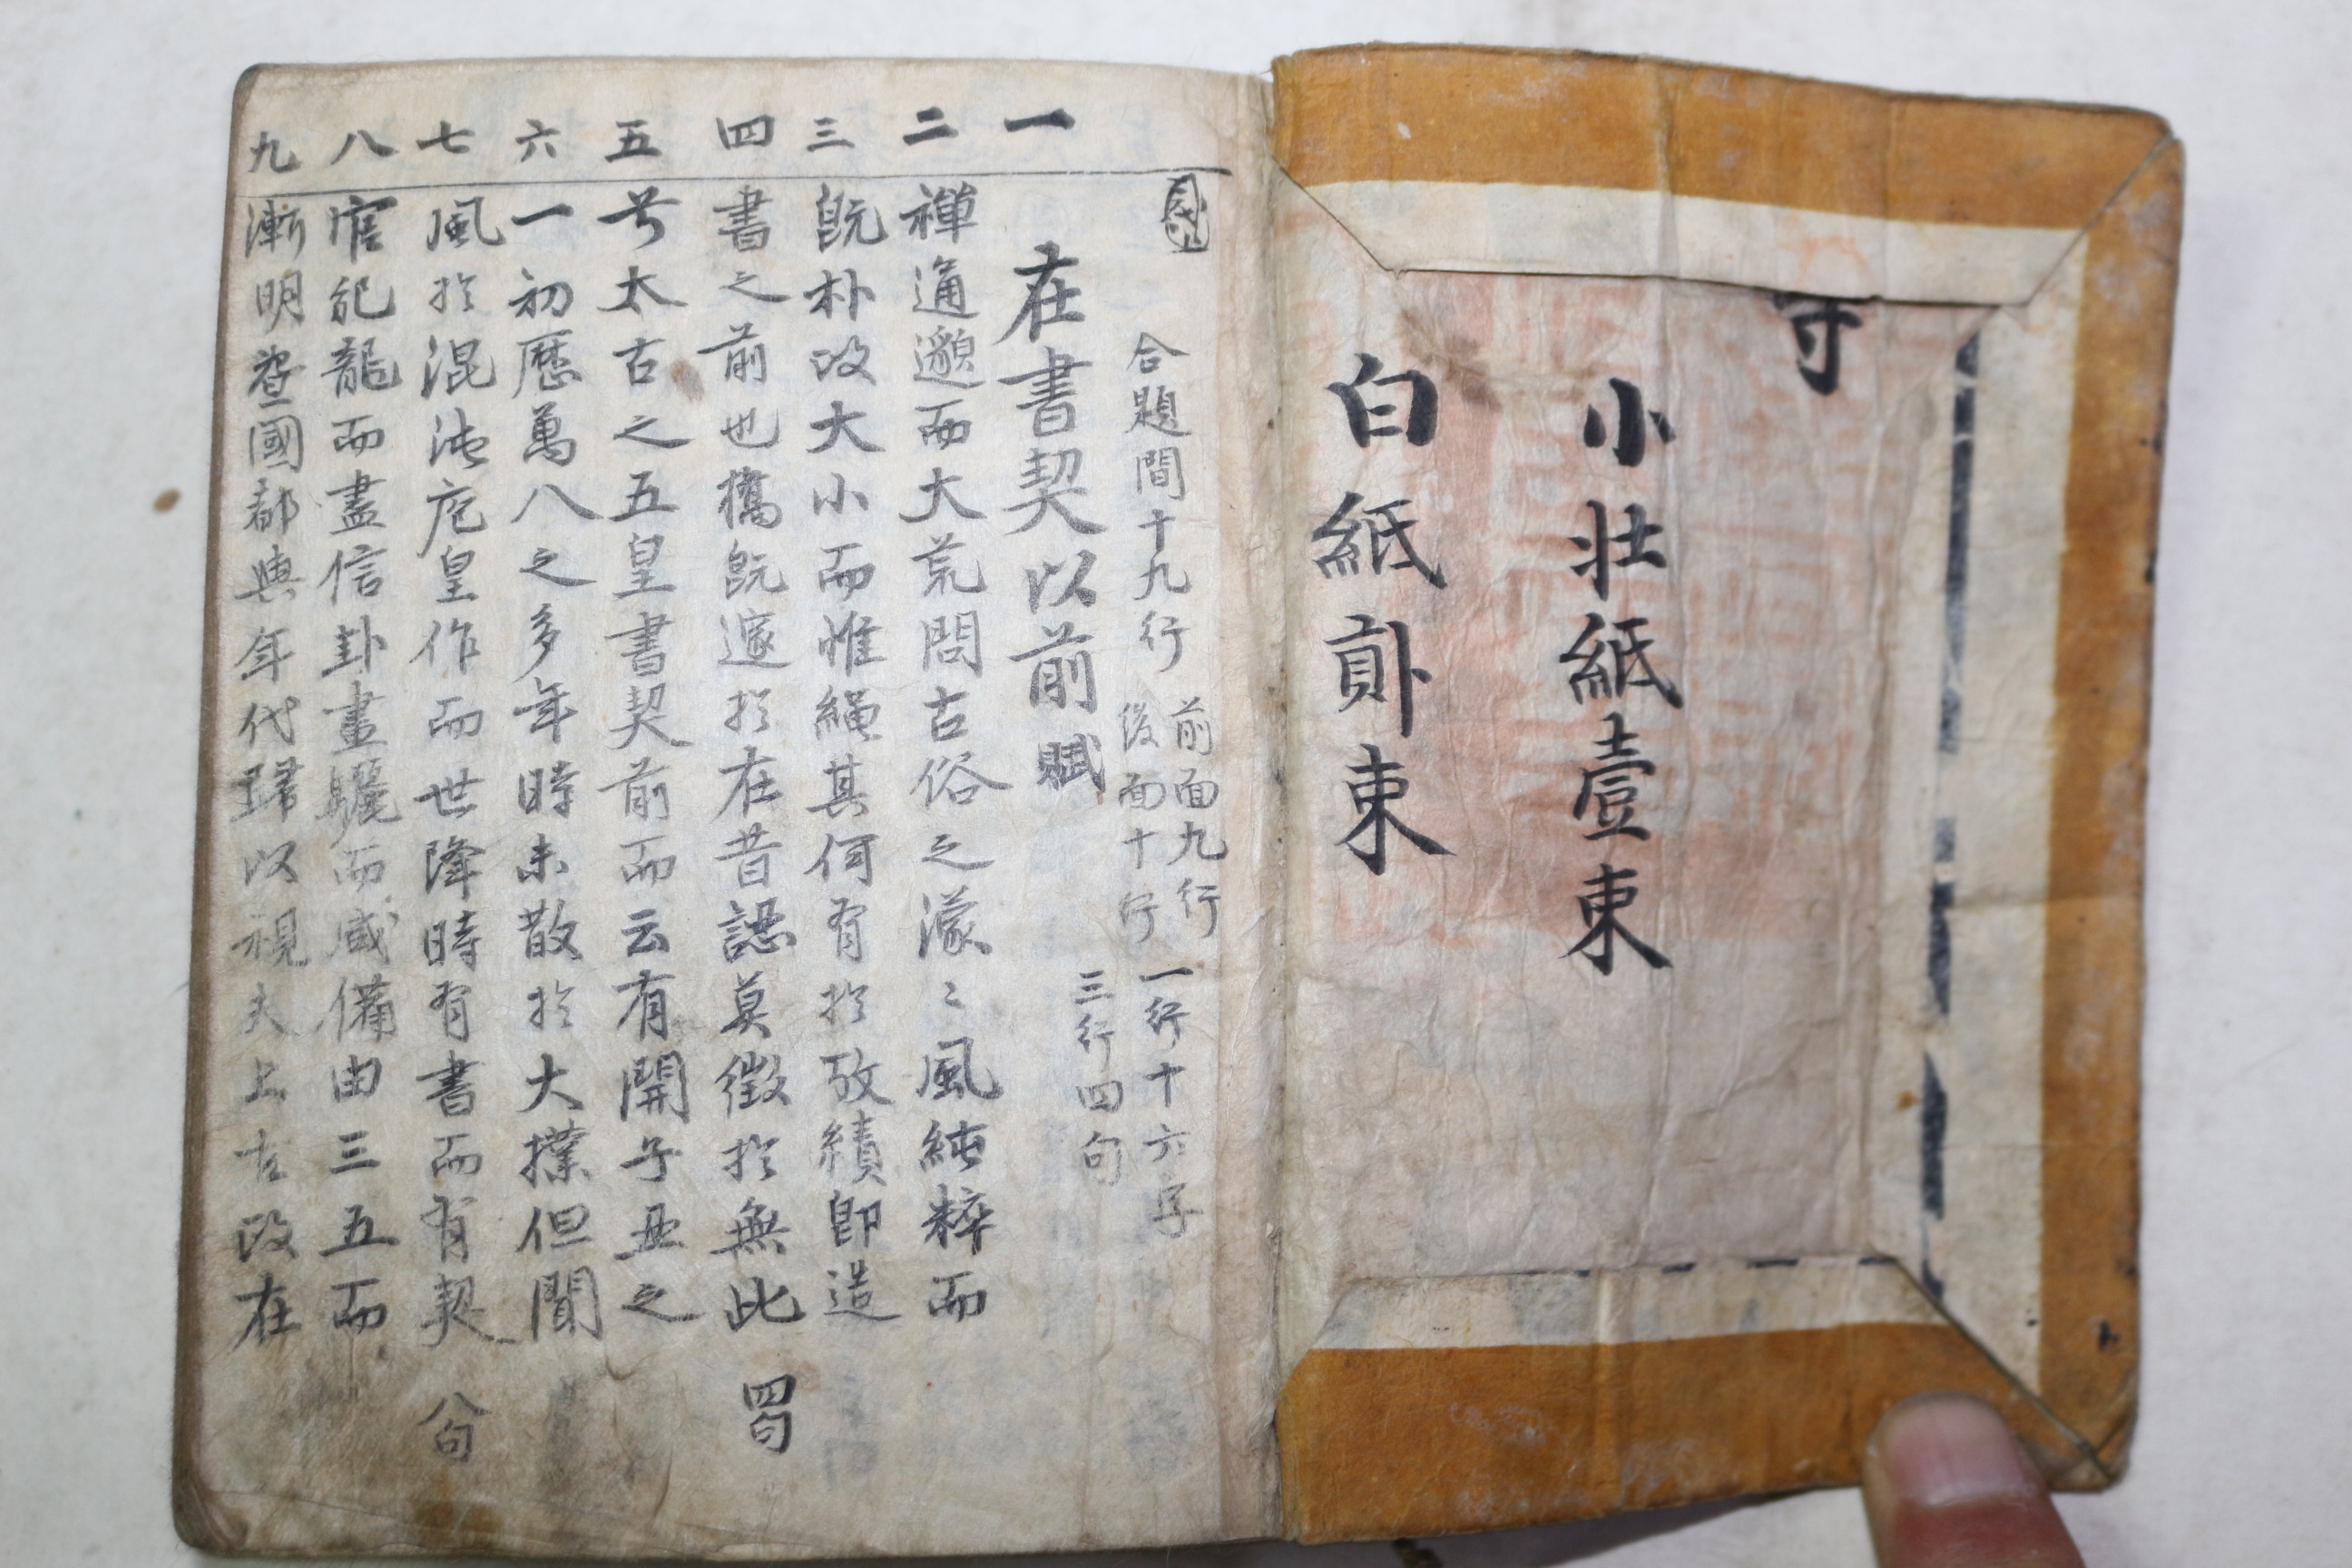 守
小壯紙壹束
白紙貳束
合題間十九行 前面九行 後面十行 一行十六字 三行四句
一 在書契以前賦
二 禪通邈而大荒問古俗之濛〻風純粹而
三 旣朴改大小而惟繩其何有於攷績卽造
四 書之前也檇旣邃於在昔認莫徵於無此 四句
五 号太古之五皇書契前而云有開子丑之
六 一初歷萬八之多年時未散於大撲但聞
七 風於混沌庖皇作而世降時有書而有契 八句
八 官紀龍而盡信卦畫驪而咸備由三五而
九 漸明盤國都與年代歸以視夫上古改在